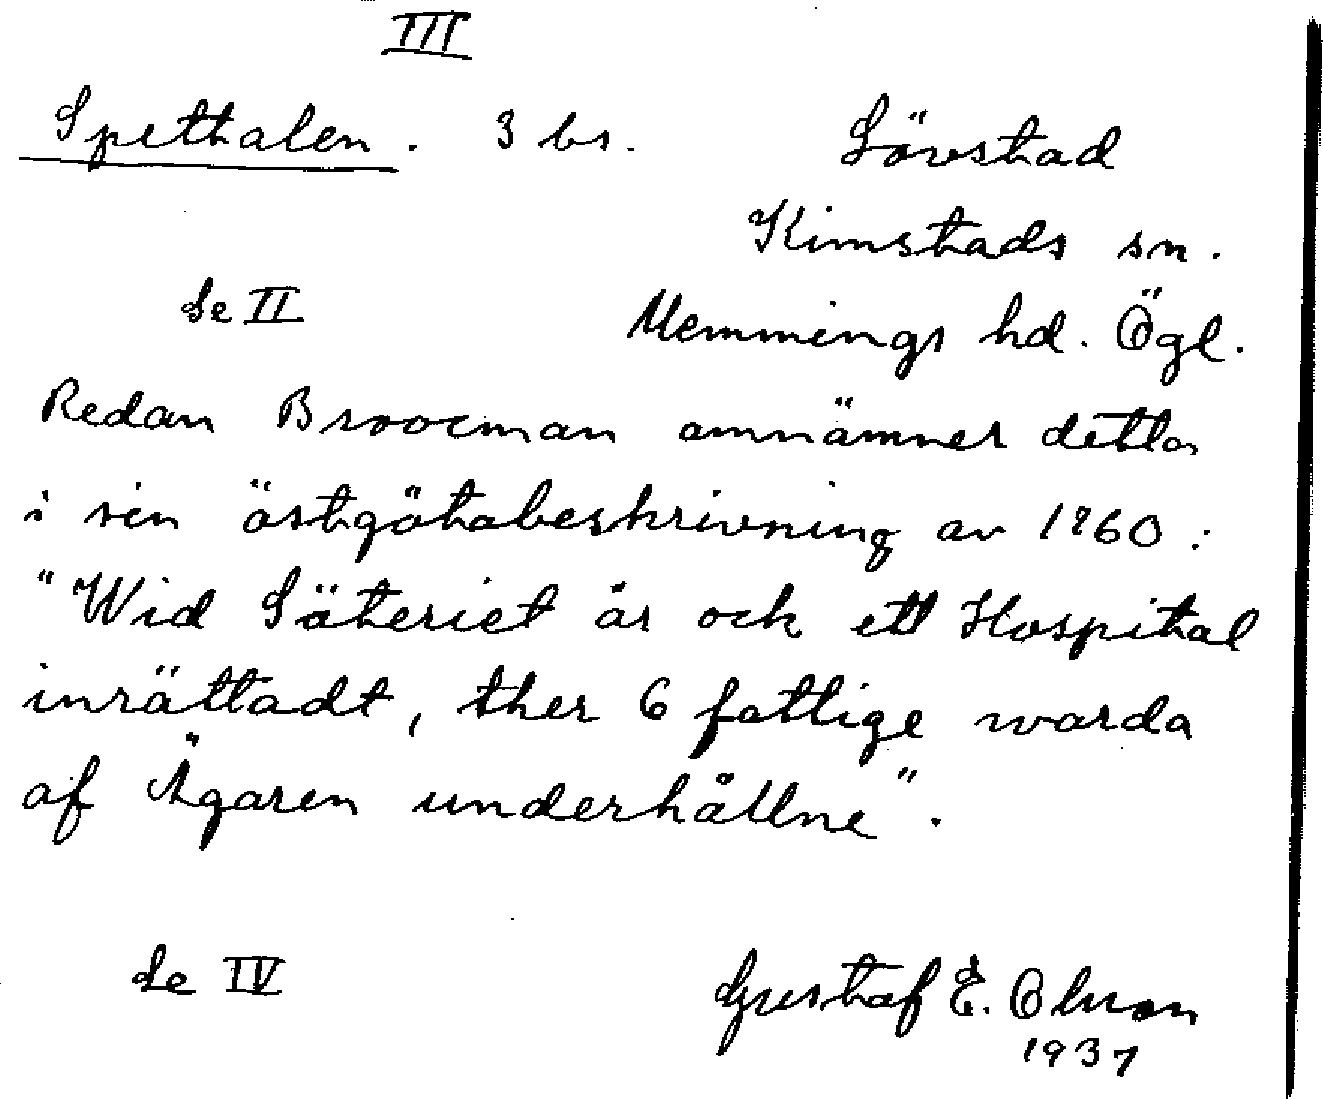 III
Spethalen. 3 bs. Lövstad
Kimstads sn.
Se II Memmings hd. Ögl.
Redan Broocman omnämner detta
i sin östgötabeskrivning av 1760:
"Wid Säteriet är ock ett Hospital
inrättadt, ther 6 fattige warda
af Ägaren underhållne".
Se IV Gustaf E. Olsson
1937